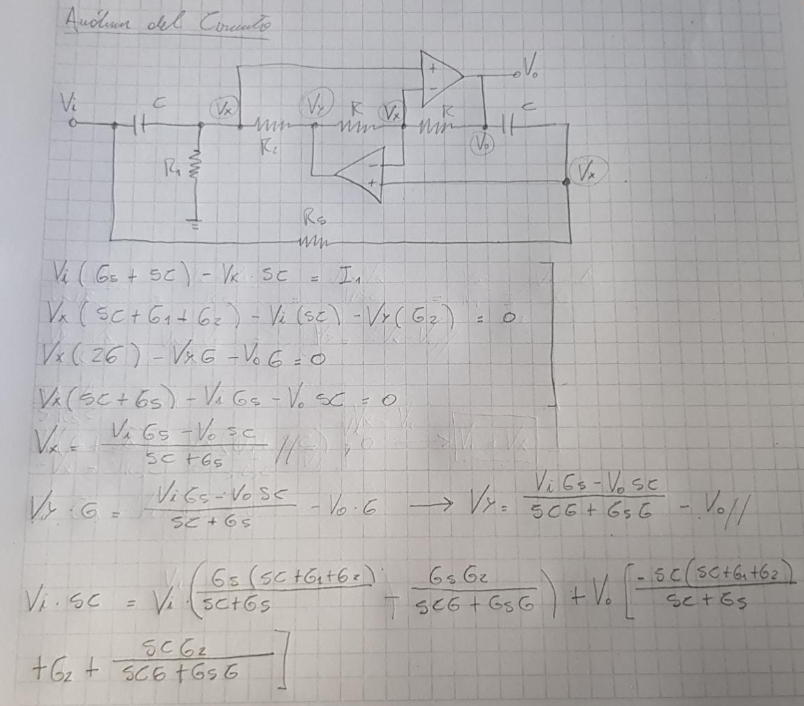 Análisis del Circuito
Vi C Vx R₂ Vy R Vx R V₀ C V₀
R₁ Vx
R₅
+ -
- +
Vi (G₅ + SC) - Vx · SC = I₁
Vx (SC + G₁ + G₂) - Vi (SC) - Vy (G₂) = 0
Vx (2G) - Vy G - V₀ G = 0
Vx (SC + G₅) - Vi G₅ - V₀ SC = 0
Vx = (Vi G₅ - V₀ SC) / (SC + G₅) //
Vy · G = (Vi G₅ - V₀ SC) / (SC + G₅) - V₀ · G → Vy = (Vi G₅ - V₀ SC) / (SCG + G₅G) - V₀ //
Vi · SC = Vi (G₅ (SC + G₁ + G₂) / (SC + G₅) - G₅G₂ / (SCG + G₅G)) + V₀ [- SC (SC + G₁ + G₂) / (SC + G₅)
+ G₂ + SCG₂ / (SCG + G₅G)]